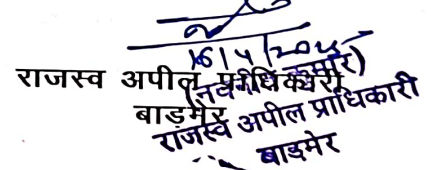 16/4/2025
राजस्व अपील प्राधिकारी
बाड़मेर
राजस्व अपील प्राधिकारी
बाड़मेर